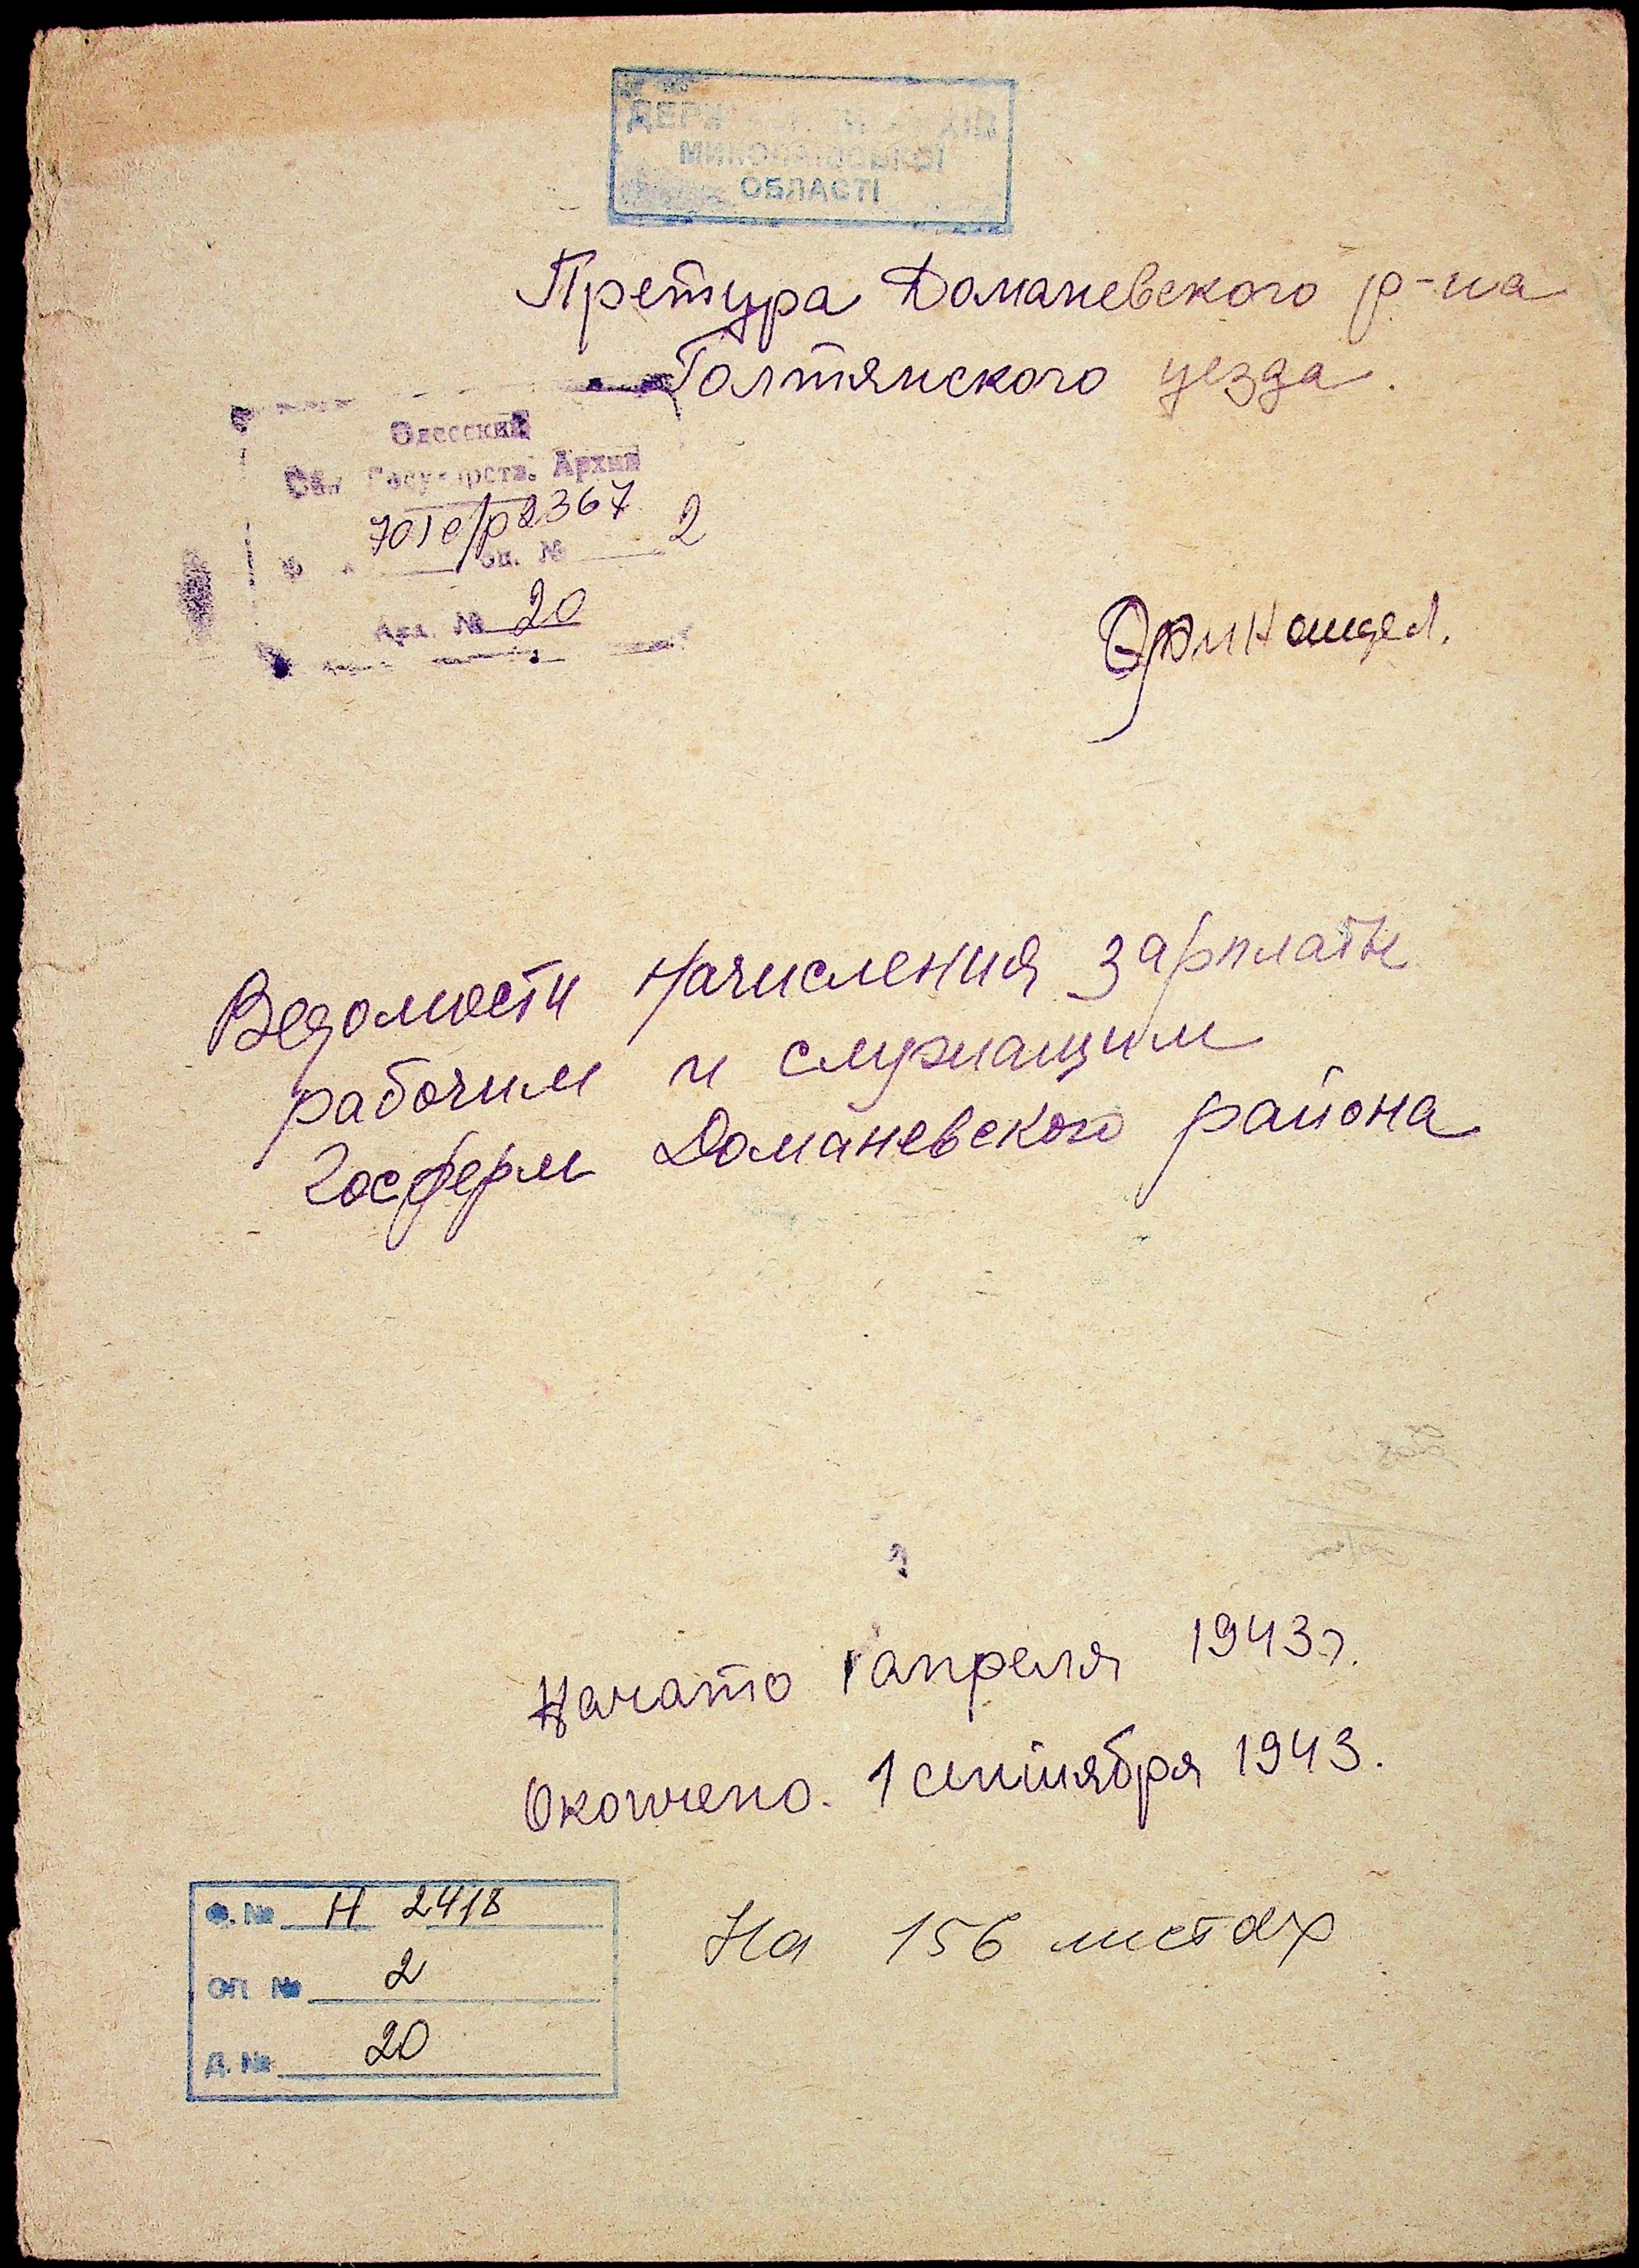 ДЕРЖАВНИЙ АРХІВ
МИКОЛАЇВСЬКОЇ
ОБЛАСТІ
Претура Доманевского р-на
Голтянского уезда.
Одесский
Обл. Государств. Архив
701с/р2367
оп. № 2
Арх. № 20
Финотдел.
Ведомости начисления зарплаты
рабочим и служащим
Госферм Доманевского района
Начато 1 апреля 1943 г.
Окончено. 1 сентября 1943.
Ф. № Н 2418
ОП № 2
Д. № 20
На 156 листах